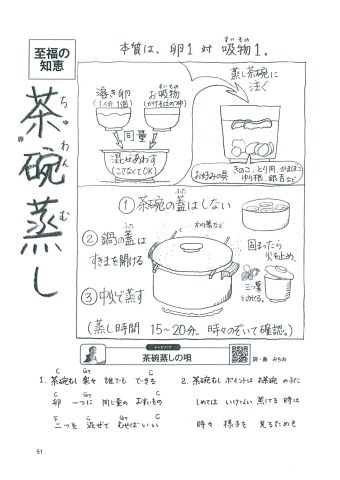 至福の
知恵
茶碗蒸し
ちゃわんむ
本質は、卵1 対 吸物1。
すいもの
溶き卵
(1人分1個)
お吸物
すいもの
(かけそばのつゆ)
同量
混ぜあわす
(こさなくてOK)
蒸し茶碗に
注ぐ
お好みの具
きのこ、とり肉、かまぼこ
ゆり根、銀杏など
①茶碗の蓋はしない
ふた
②鍋の蓋は
すきまを開ける
わり箸など
③中火で蒸す
固まったら
火を止め、
三つ葉
とのせる。
(蒸し時間 15〜20分。時々のぞいて確認。)
レシピソング
茶碗蒸しの唄
詞・曲 みちお
C G7 C
1. 茶碗むし 楽々 誰でも できる
C G7 C
卵 一つに 同じ量の お吸いもの
F C G7 C
二つを 混ぜて むせばいい
2. 茶碗むし ポイントは お茶碗 のふた
しめては いけない 蒸してる 時は
時々 様子を 見るためさ
51